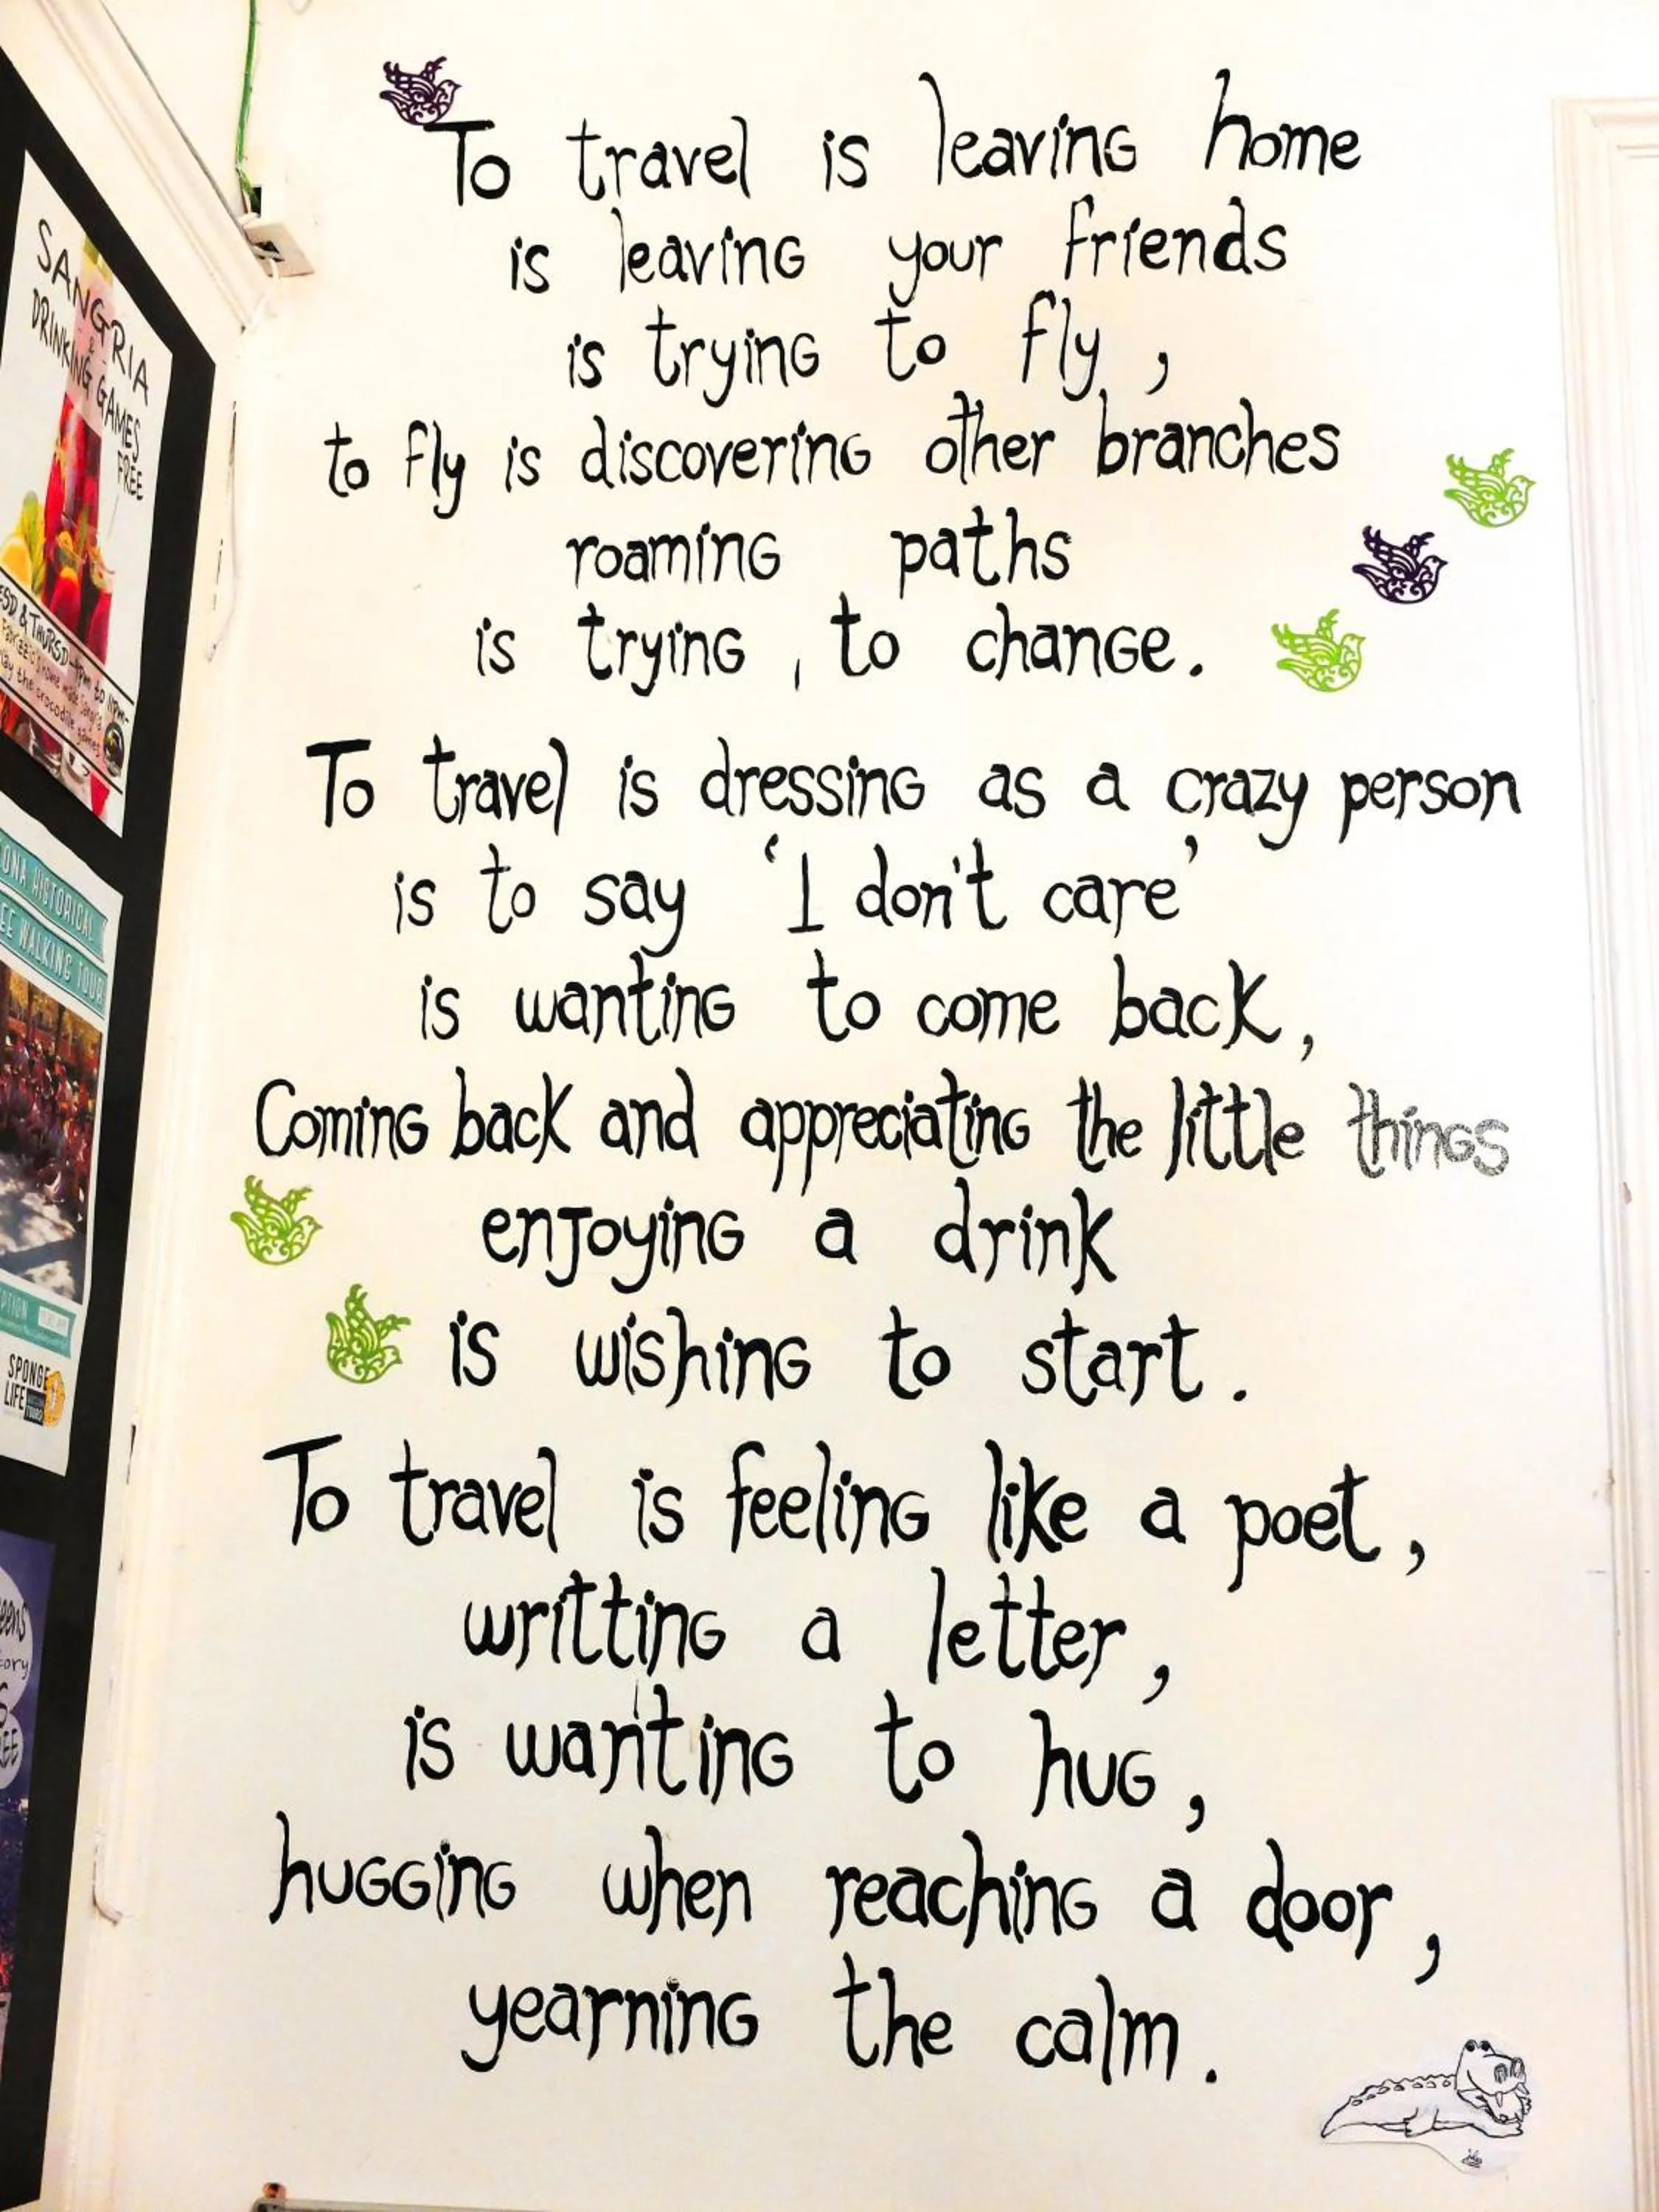 To travel is leaving home
is leaving your friends
is trying to fly ,
to fly is discovering other branches
roaming paths
is trying , to change.
To travel is dressing as a crazy person
is to say 'I don't care'
is wanting to come back,
Coming back and appreciating the little things
enjoying a drink
is wishing to start.
To travel is feeling like a poet,
writting a letter,
is wanting to hug,
hugging when reaching a door,
yearning the calm.
SANGRIA
&
DRINKING GAMES
FREE
& THURSD
the crocodile games
HISTORICAL
WALKING TOUR
SPONGE
LIFE
TOURS